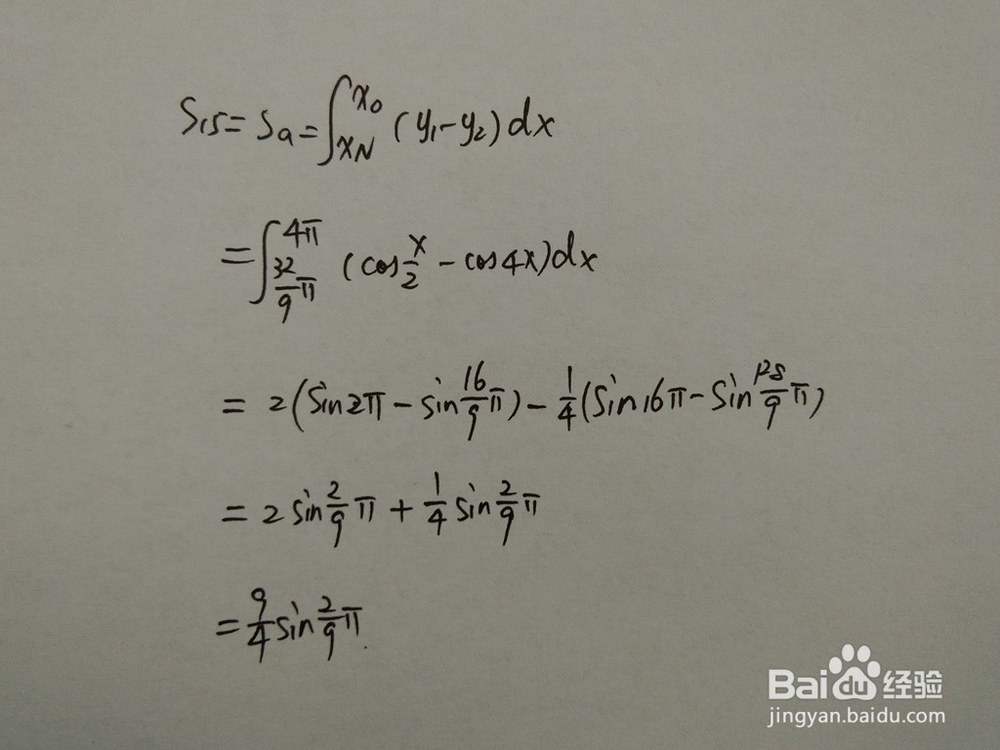 S₁₅=Sₐ=∫_{x_N}^{x_0}(y₁-y₂)dx
=∫_{32/9 π}^{4π}(cos x/2 - cos4x)dx
=2(sin2π-sin 16/9 π)-1/4(sin16π-sin 128/9 π)
=2sin 2/9 π+1/4 sin 2/9 π
=9/4 sin 2/9 π.
Baidu经验
jingyan.baidu.com